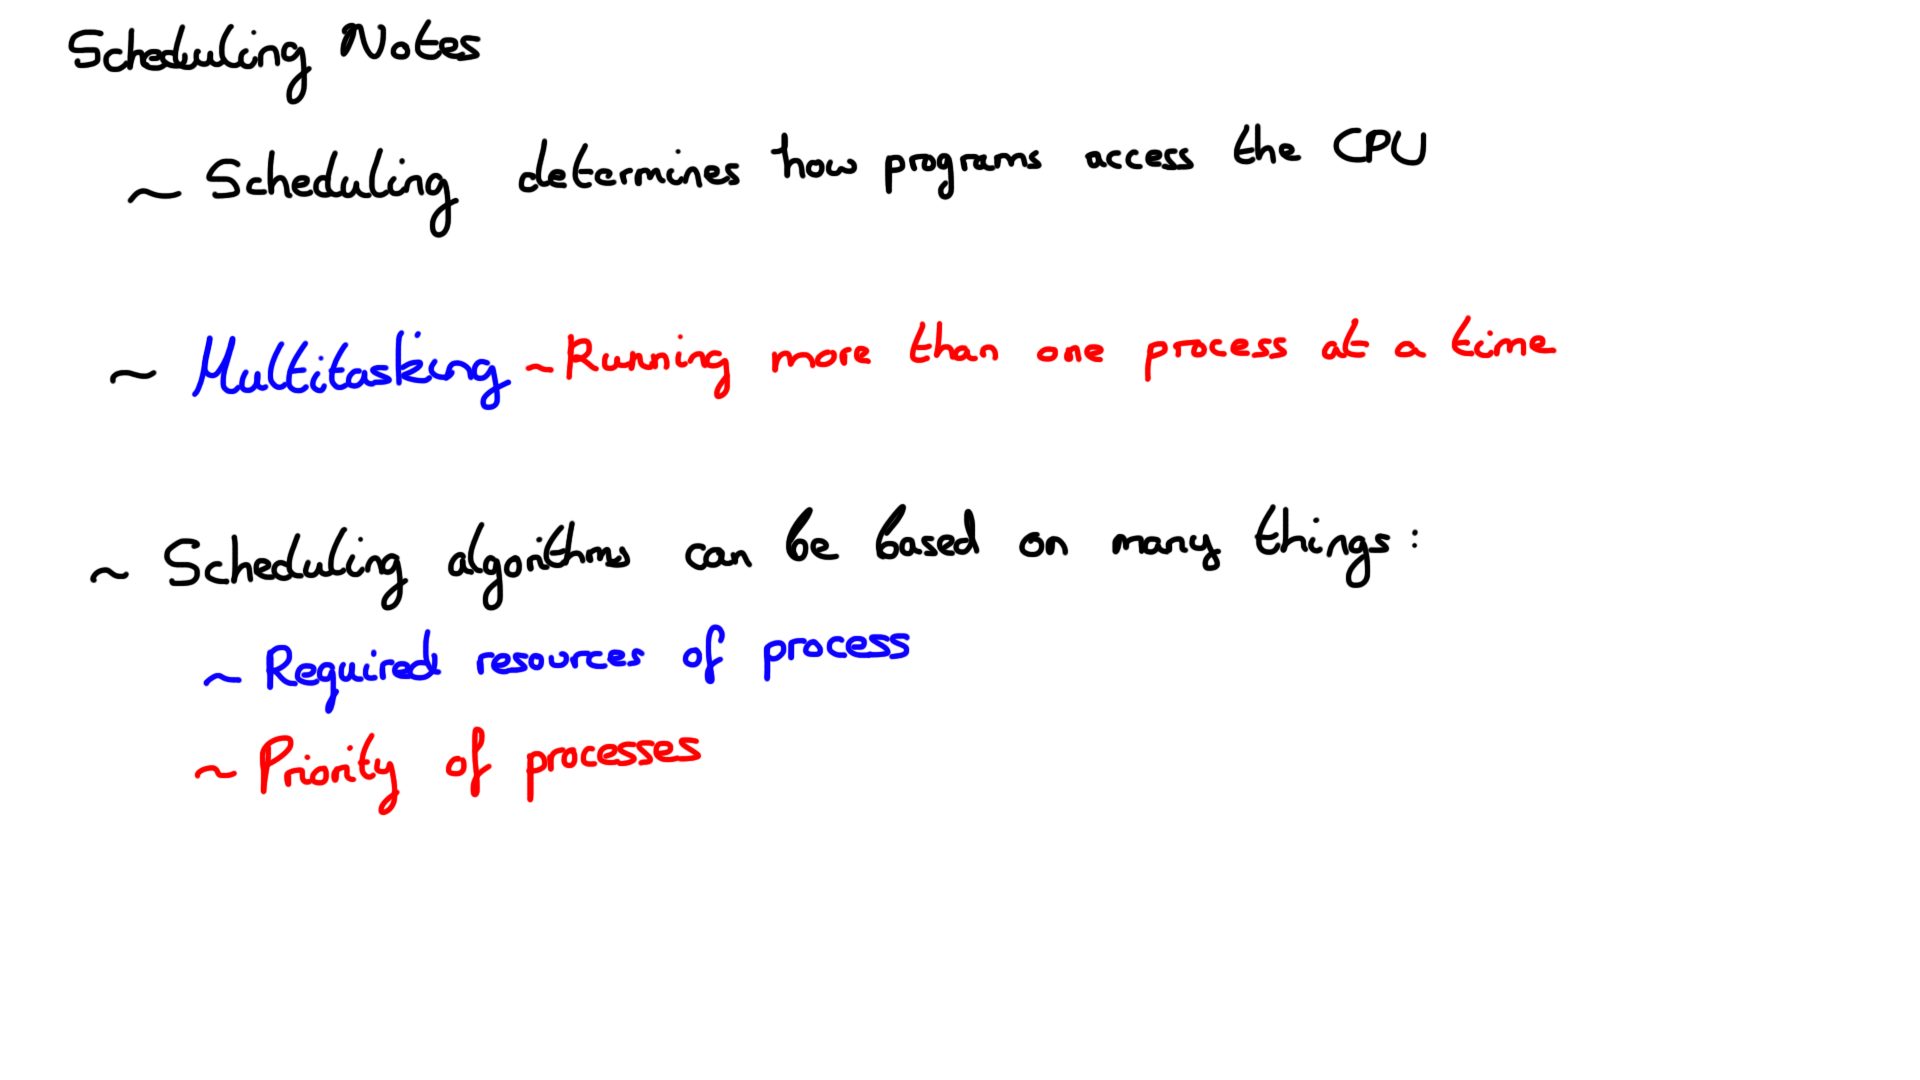 Scheduling Notes
~ Scheduling determines how programs access the CPU
~ Multitasking ~ Running more than one process at a time
~ Scheduling algorithms can be based on many things:
~ Required resources of process
~ Priority of processes